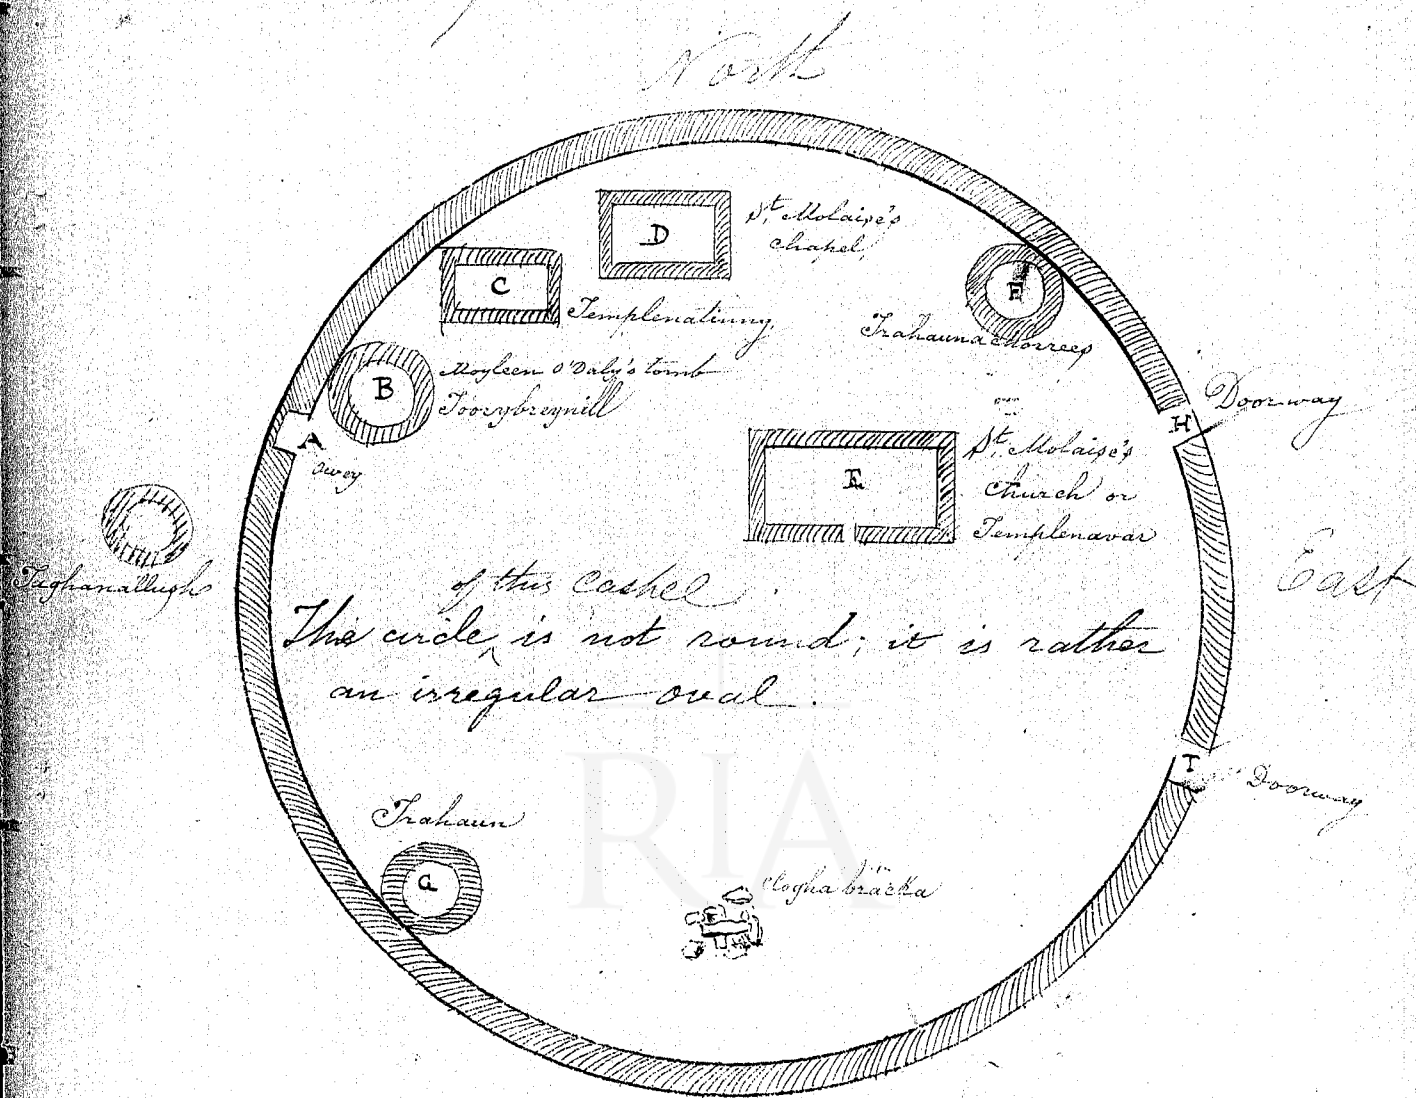 North
D
St. Molaise's
chapel,
C
Templenatinny,
F
Trahauna Chorrees
Moyleen O'Daly's tomb
B
Toorybreynill
Doorway
H
A
Owey
E
St. Molaise's
church or
Templenavar
Taghanallugh
East
of this Cashel
The circle ‸ is not round; it is rather
an irregular oval.
RIA
I
Doorway
Trahaun
G
Clogha bracka